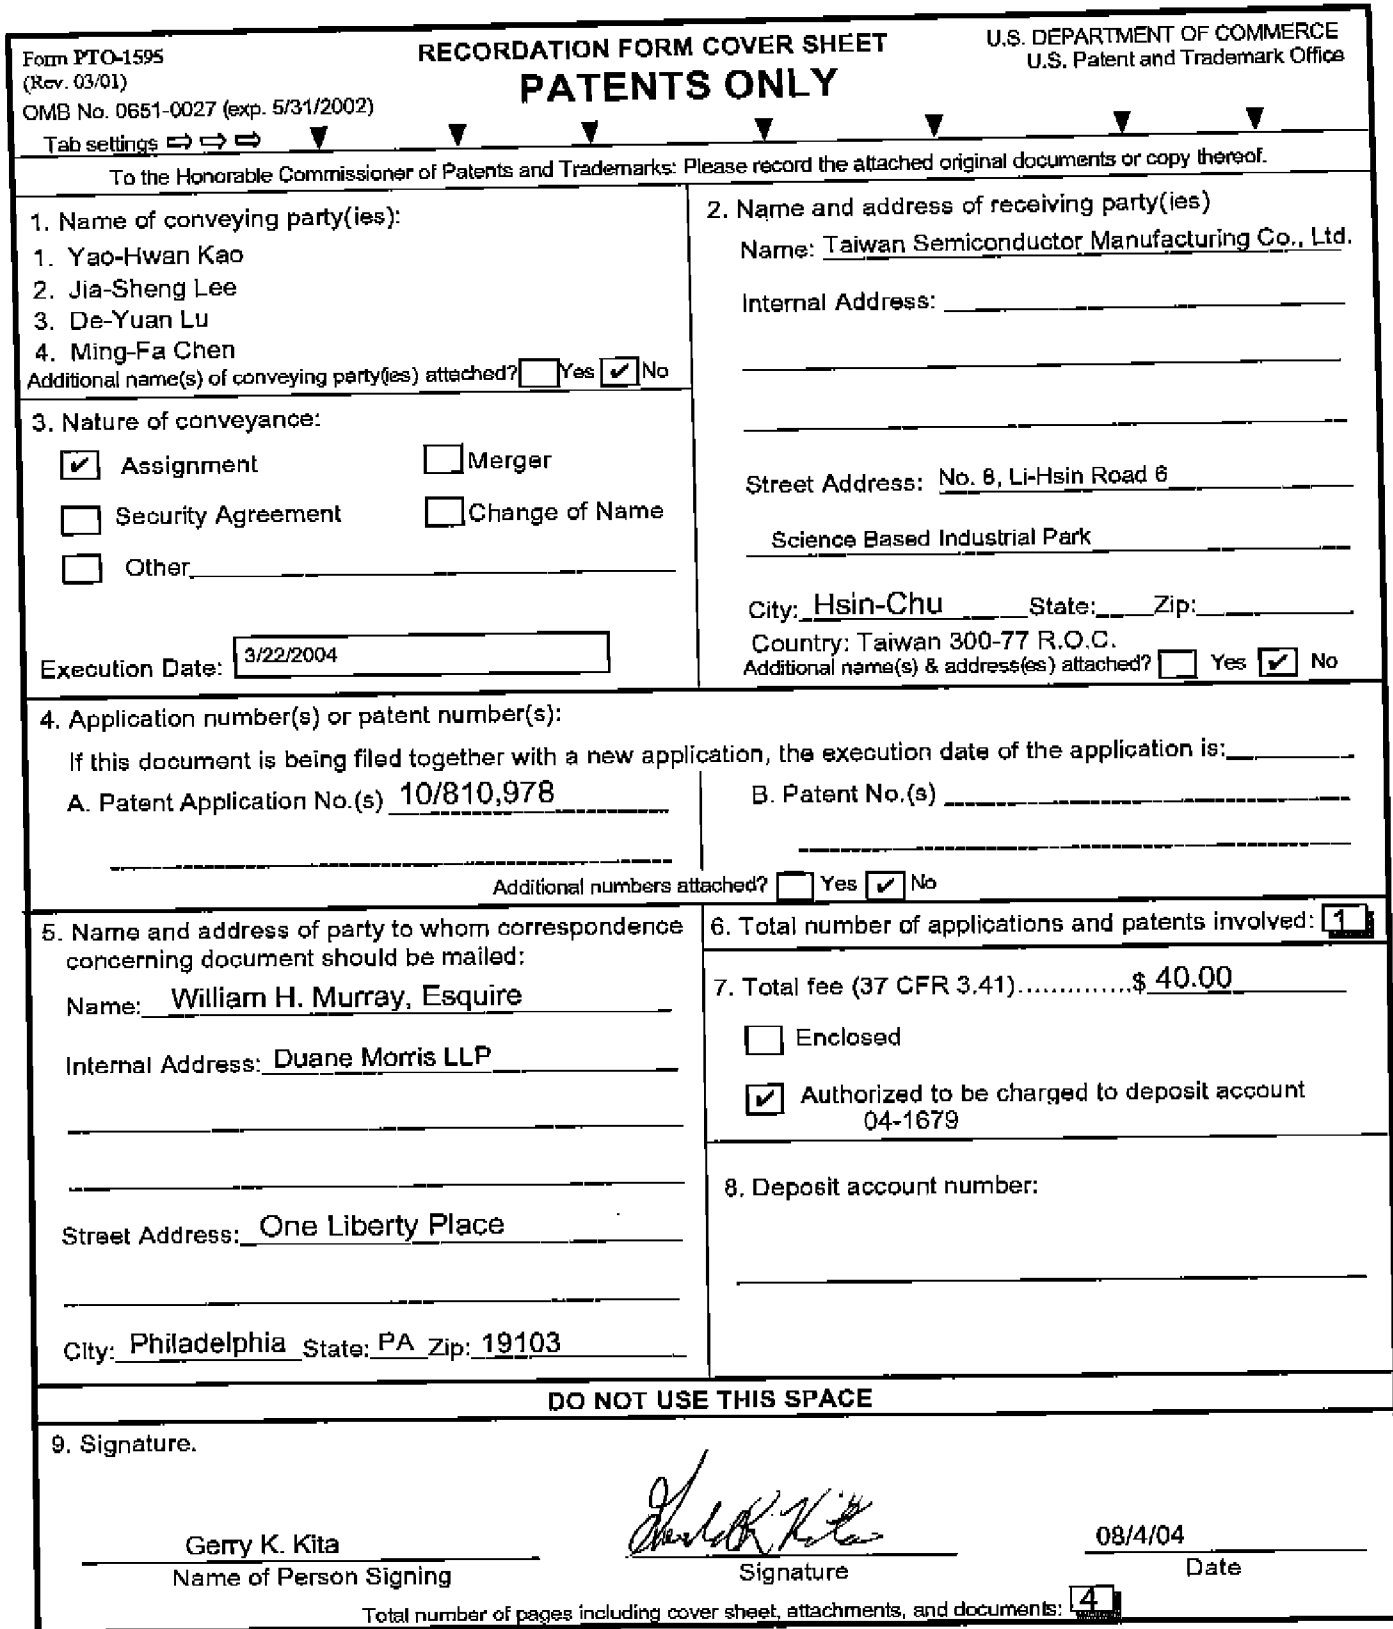 Form PTO-1595
(Rev. 03/01)
OMB No. 0651-0027 (exp. 5/31/2002)
Tab settings ⇨ ⇨ ⇨ ▼ ▼ ▼ ▼ ▼ ▼ ▼
RECORDATION FORM COVER SHEET
PATENTS ONLY
U.S. DEPARTMENT OF COMMERCE
U.S. Patent and Trademark Office
To the Honorable Commissioner of Patents and Trademarks: Please record the attached original documents or copy thereof.
1. Name of conveying party(ies):
1. Yao-Hwan Kao
2. Jia-Sheng Lee
3. De-Yuan Lu
4. Ming-Fa Chen
Additional name(s) of conveying party(ies) attached? Yes ✔ No
2. Name and address of receiving party(ies)
Name: Taiwan Semiconductor Manufacturing Co., Ltd.
Internal Address:
Street Address: No. 8, Li-Hsin Road 6
Science Based Industrial Park
City: Hsin-Chu State: Zip:
Country: Taiwan 300-77 R.O.C.
Additional name(s) & address(es) attached? Yes ✔ No
3. Nature of conveyance:
✔ Assignment Merger
Security Agreement Change of Name
Other
Execution Date: 3/22/2004
4. Application number(s) or patent number(s):
If this document is being filed together with a new application, the execution date of the application is:
A. Patent Application No.(s) 10/810,978
B. Patent No.(s)
Additional numbers attached? Yes ✔ No
5. Name and address of party to whom correspondence
concerning document should be mailed:
Name: William H. Murray, Esquire
Internal Address: Duane Morris LLP
Street Address: One Liberty Place
City: Philadelphia State: PA Zip: 19103
6. Total number of applications and patents involved: 1
7. Total fee (37 CFR 3.41)..............$ 40.00
Enclosed
✔ Authorized to be charged to deposit account
04-1679
8. Deposit account number:
DO NOT USE THIS SPACE
9. Signature.
Gerry K. Kita
Name of Person Signing
Signature
08/4/04
Date
Total number of pages including cover sheet, attachments, and documents: 4